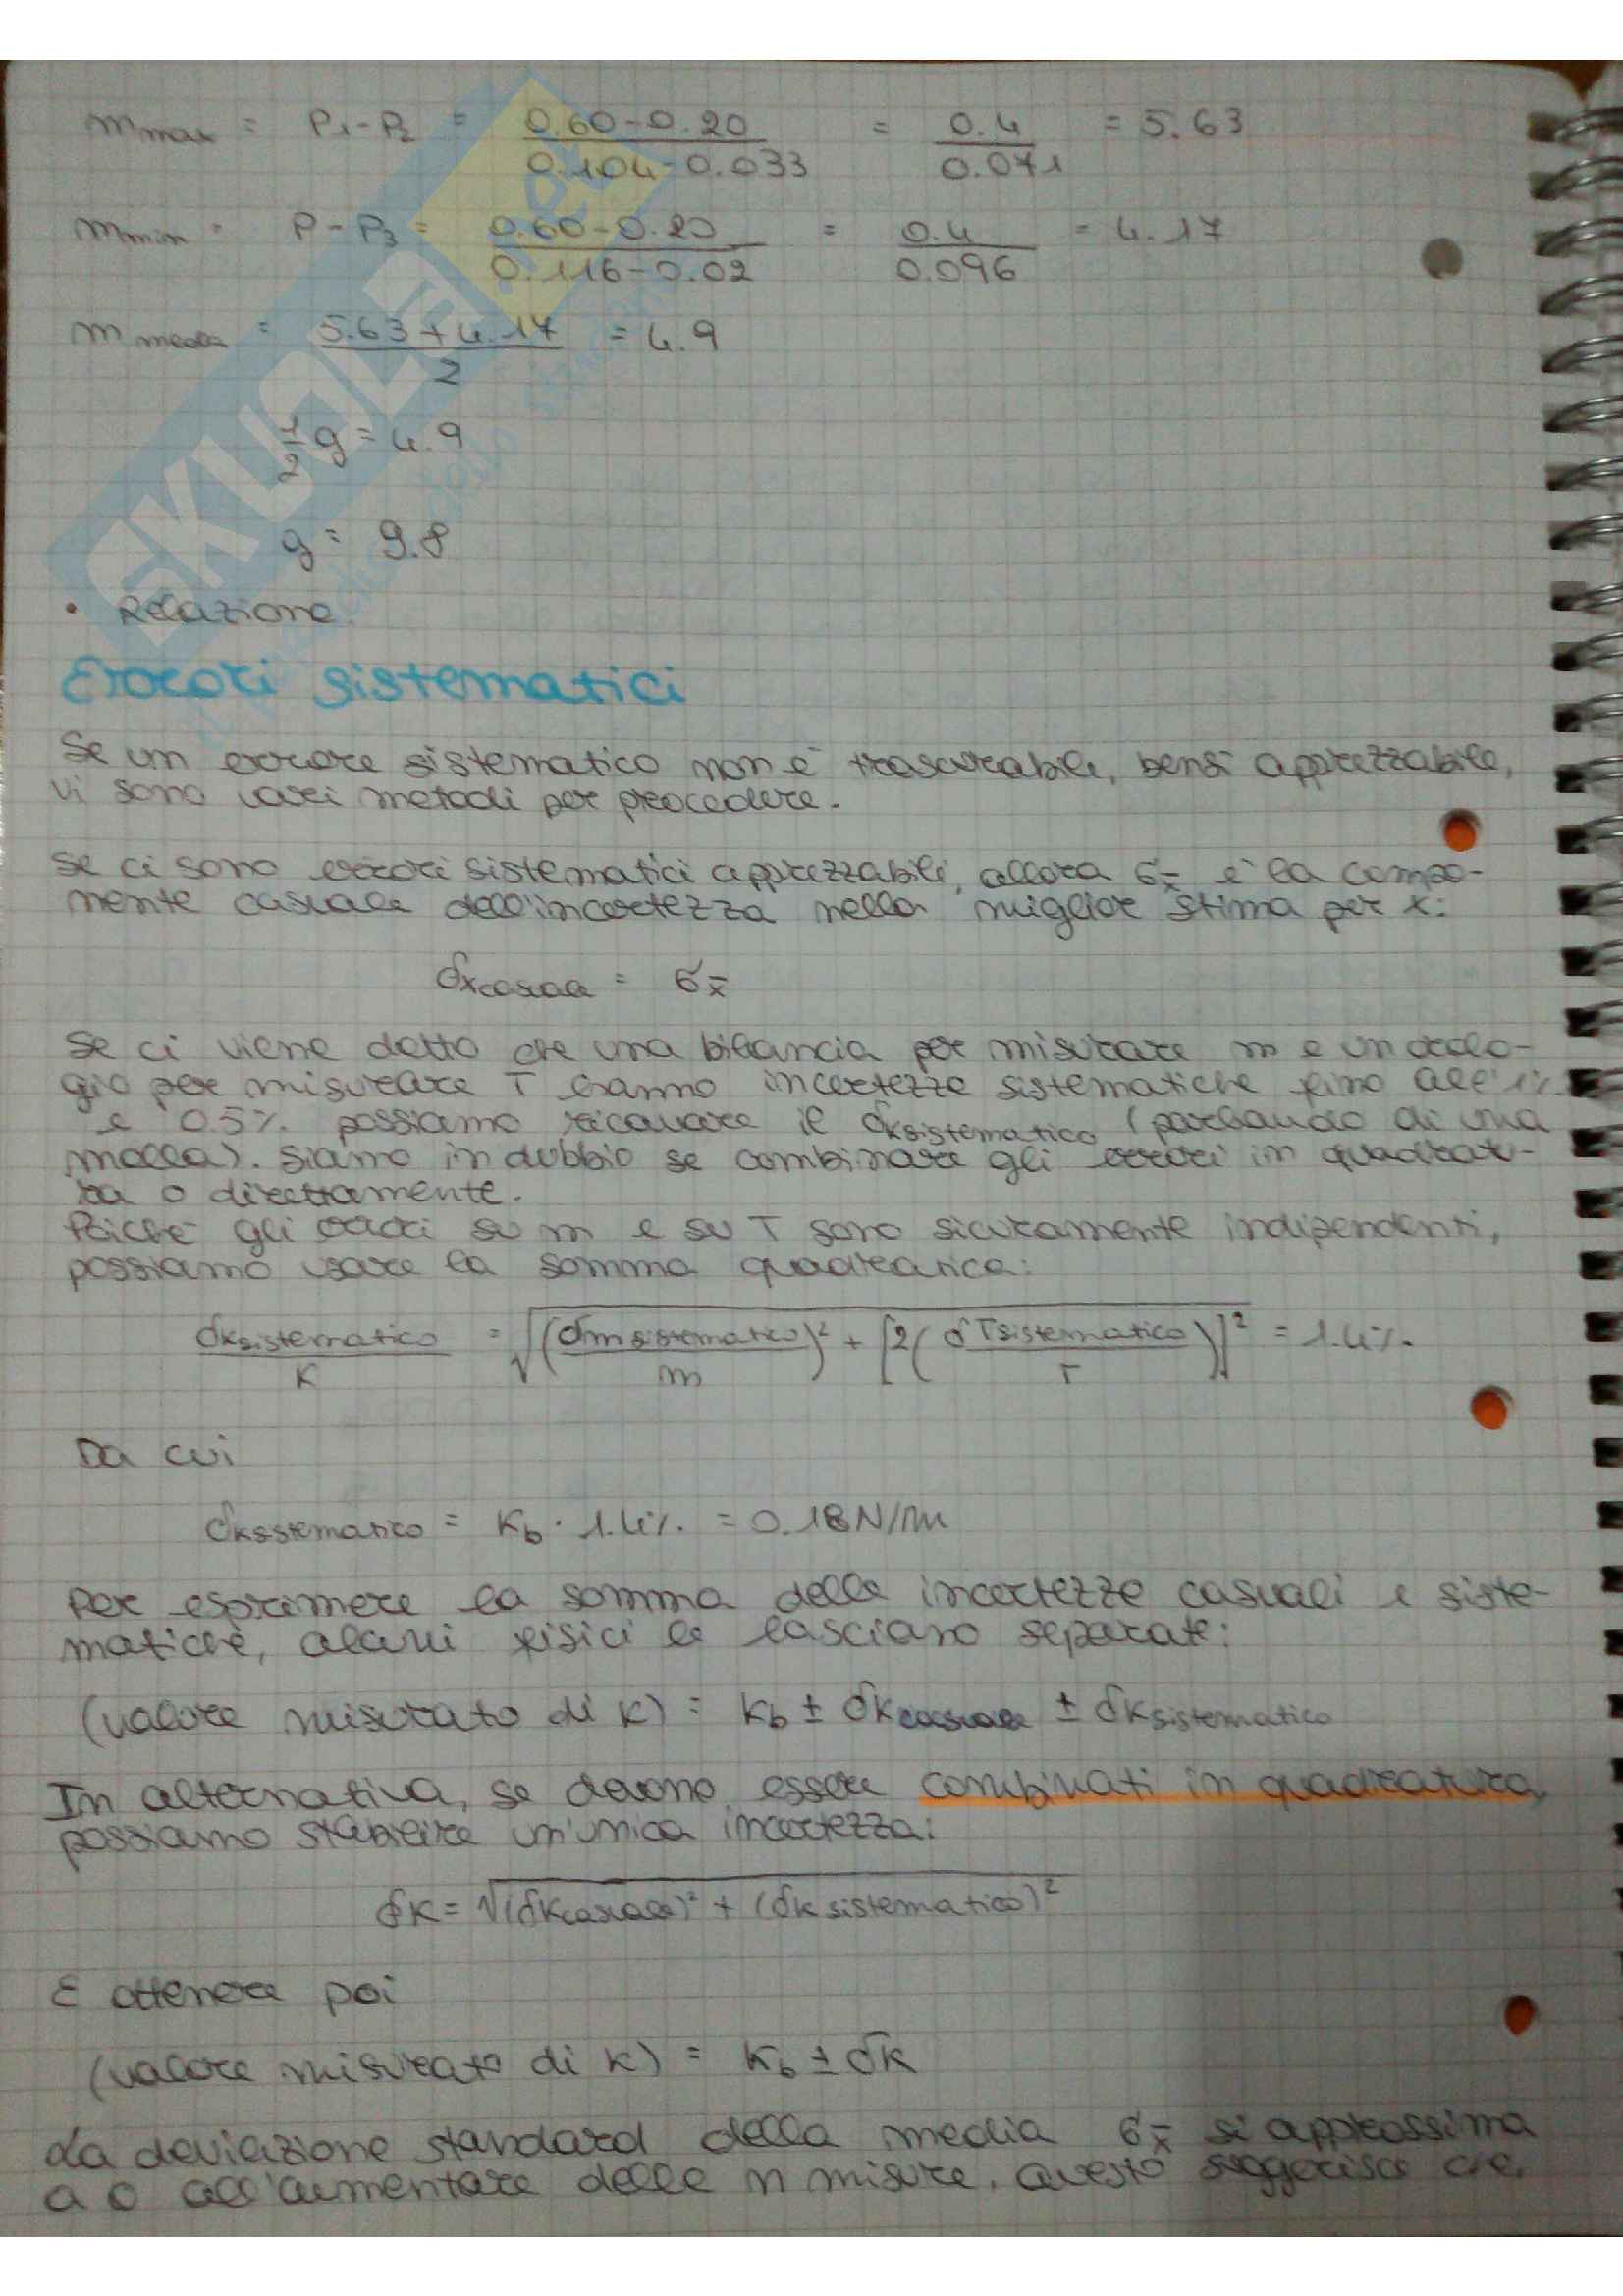 m max = P1-P2 = 0.60-0.20 / 0.104-0.033 = 0.4 / 0.071 = 5.63
m min = P-P3 = 0.60-0.20 / 0.116-0.02 = 0.4 / 0.096 = 4.17
m media = 5.63+4.17 / 2 = 4.9
1/2 g = 4.9
g = 9.8
• Relazione.
Errori sistematici
Se un errore sistematico non è trascurabile, bensì apprezzabile,
vi sono vari metodi per procedere.
Se ci sono errori sistematici apprezzabili, allora σx̄ è la compo-
nente casuale dell'incertezza nella miglior stima per x:
δx casuale = σx̄
Se ci viene detto che una bilancia per misurare m e un orolo-
gio per misurare T hanno incertezze sistematiche fino all'1%
e 0.5% possiamo ricavare il δk sistematico (parlando di una
molla). Siamo in dubbio se combinare gli errori in quadrat-
ra o direttamente.
Poiché gli errori su m e su T sono sicuramente indipendenti,
possiamo usare la somma quadratica:
δk sistematico / K = √(δm sistematico / m)² + [2(δT sistematico / T)]² = 1.4%.
Da cui
δk sistematico = Kb · 1.4% = 0.18 N/m
Per esprimere la somma delle incertezze casuali e siste-
matiche, alcuni fisici le lasciano separate:
(valore misurato di k) = kb ± δk casuale ± δk sistematico
In alternativa, se devono essere combinati in quadratura,
possiamo stabilire un'unica incertezza:
δk = √(δk casuale)² + (δk sistematico)²
E ottenere poi
(valore misurato di k) = kb ± δk
La deviazione standard della media σx̄ si approssima
a 0 all'aumentare delle n misure. Questo suggerisce che,
SKUOLA.net